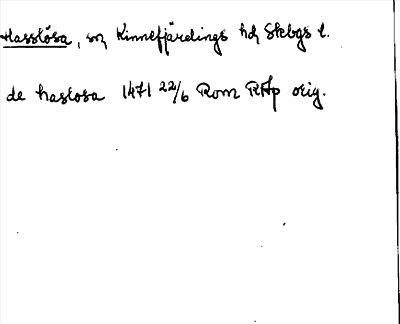 Hasslösa, sn, Kinnefjärdings hd, Skbgs l.
de haslosa 1471 22/6 Rom RAp orig.